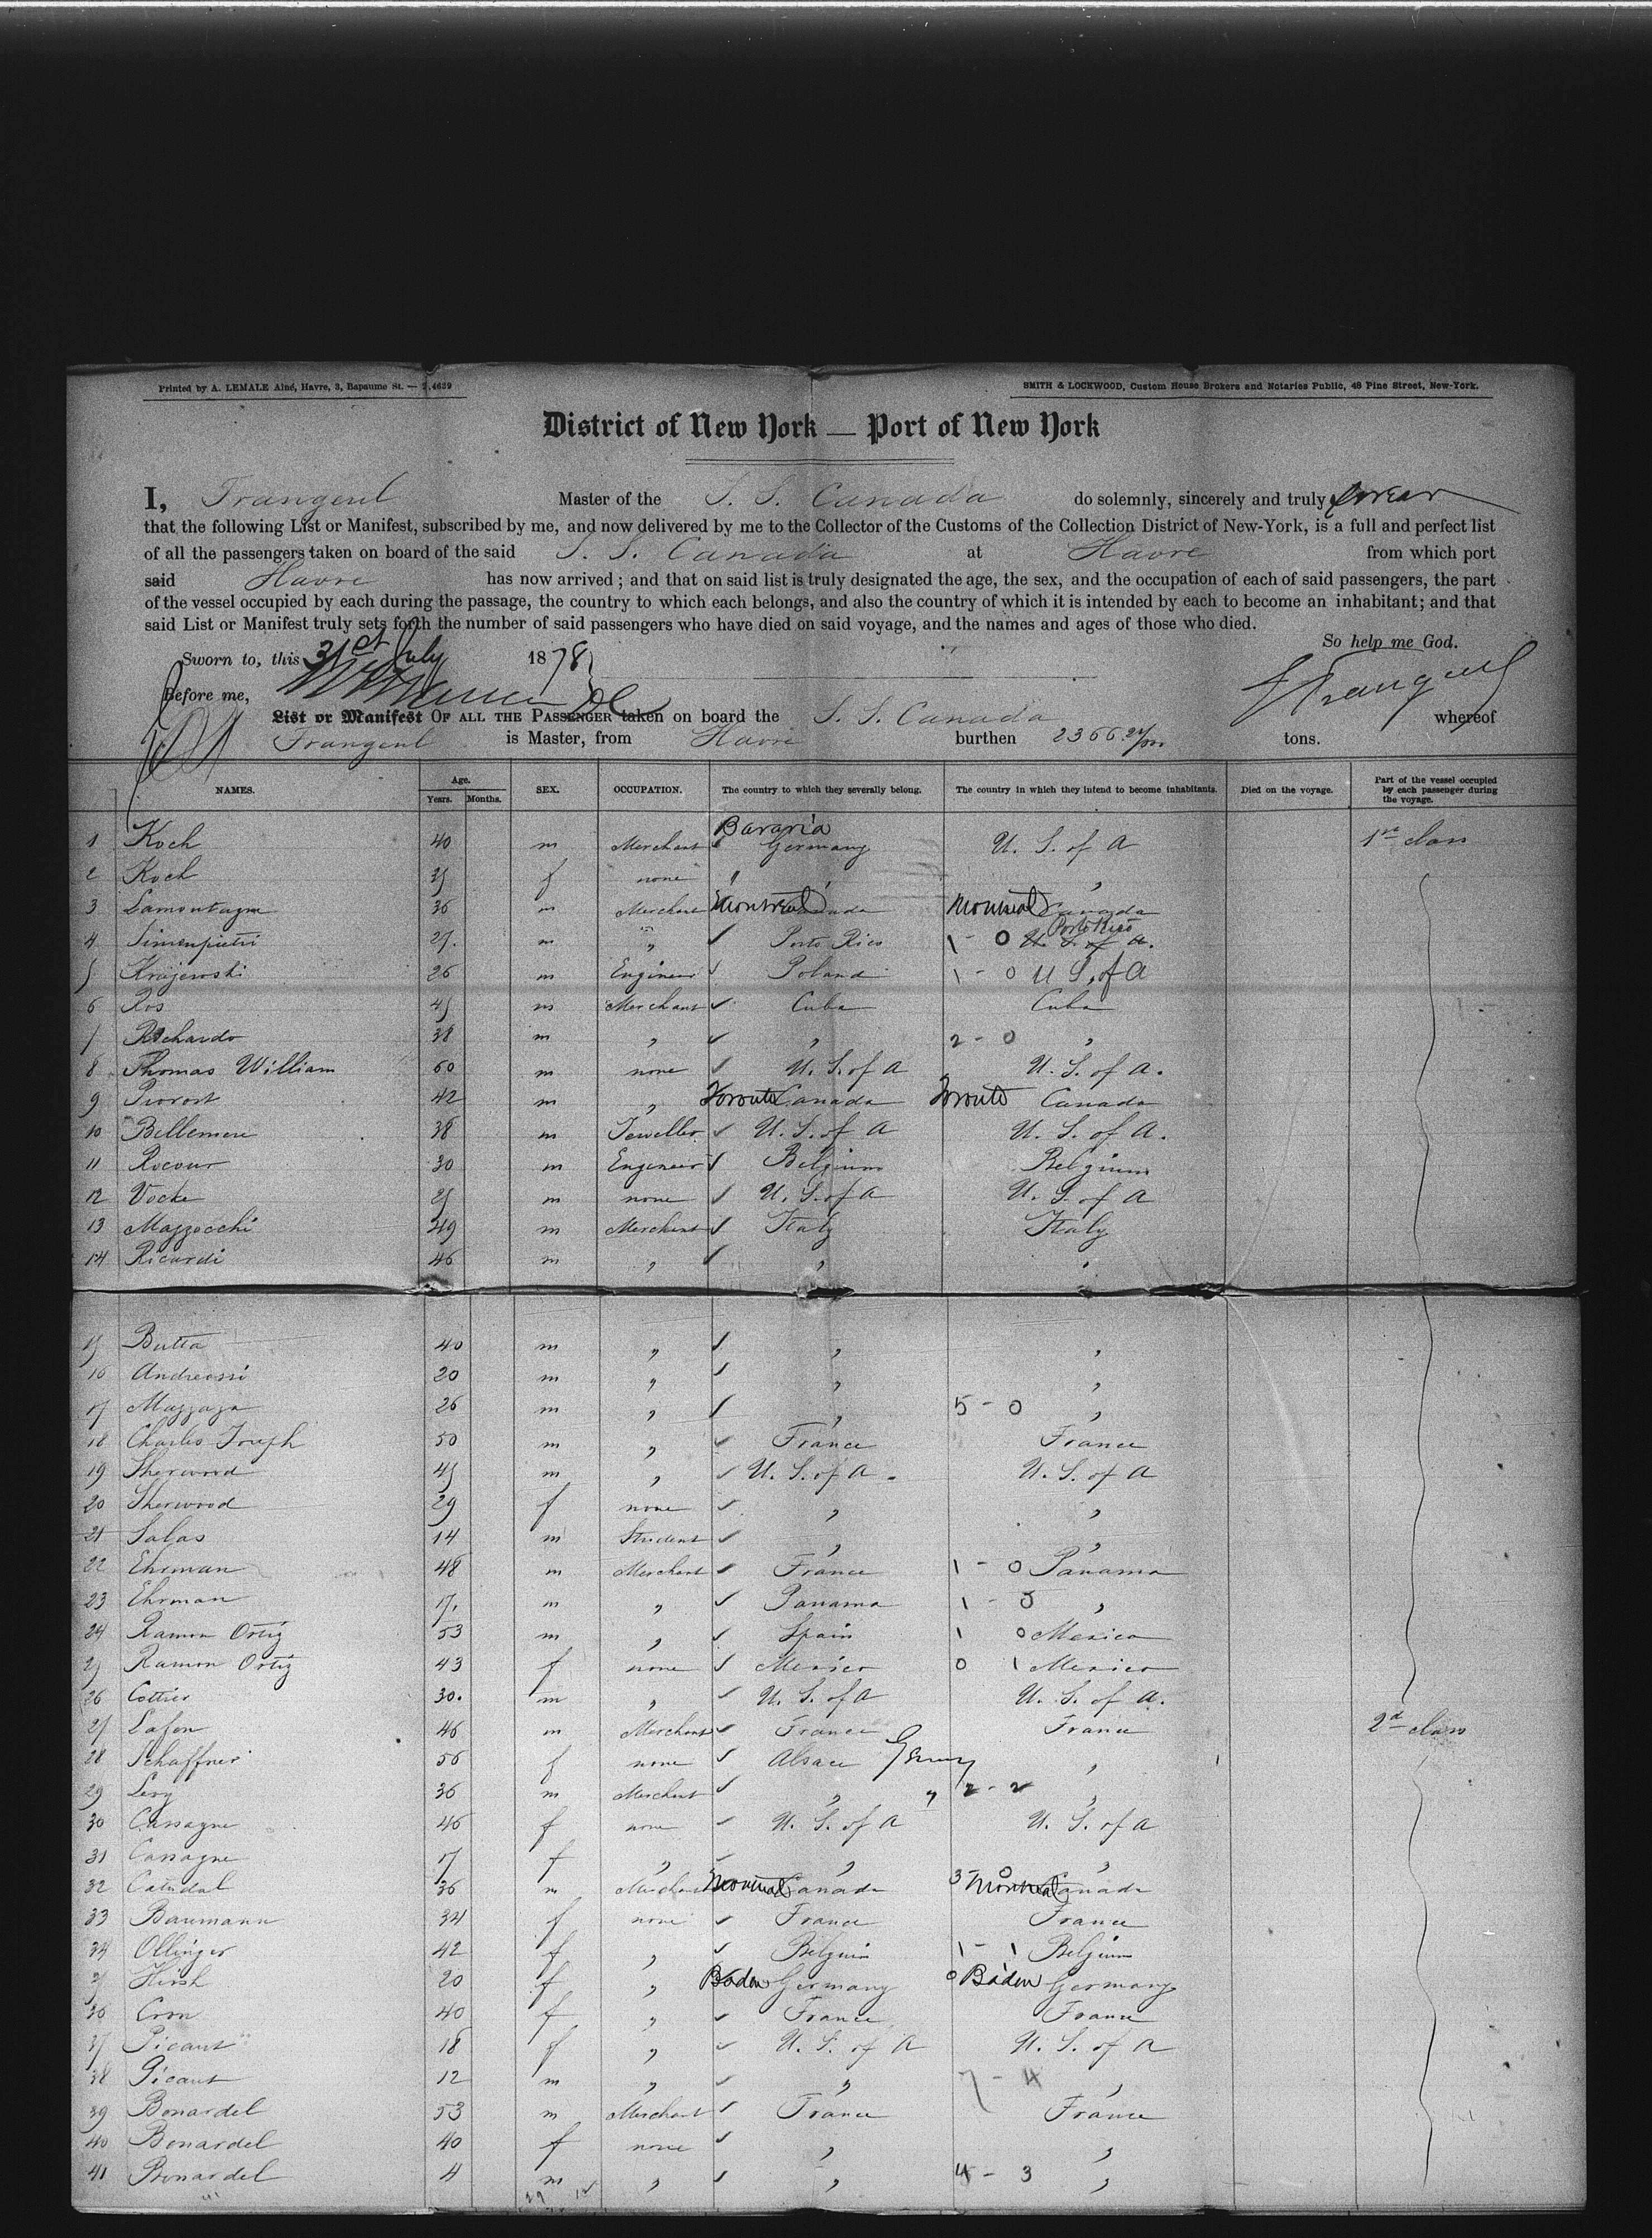 Printed by A. LEMALE Ainé, Havre, 3, Bapaume St. — 2.4639
SMITH & LOCKWOOD, Custom House Brokers and Notaries Public, 48 Pine Street, New-York.
District of New York — Port of New York
I, Frangeul Master of the S. S. Canada do solemnly, sincerely and truly swear
that the following List or Manifest, subscribed by me, and now delivered by me to the Collector of the Customs of the Collection District of New-York, is a full and perfect list
of all the passengers taken on board of the said S. S. Canada at Havre from which port
said Havre has now arrived ; and that on said list is truly designated the age, the sex, and the occupation of each of said passengers, the part
of the vessel occupied by each during the passage, the country to which each belongs, and also the country of which it is intended by each to become an inhabitant; and that
said List or Manifest truly sets forth the number of said passengers who have died on said voyage, and the names and ages of those who died.
So help me God.
Sworn to, this 31st July 1878
Before me, Frangeul
List or Manifest OF ALL THE PASSENGER taken on board the S. S. Canada whereof
Frangeul is Master, from Havre burthen 2366 tons.
NAMES. Age. Years. Months. SEX. OCCUPATION. The country to which they severally belong. The country in which they intend to become inhabitants. Died on the voyage. Part of the vessel occupied by each passenger during the voyage.
1 Koch 40 m Merchant Bavaria Germany U. S. of A 1re class
2 Koch 35 f none " "
3 Lamontagne 36 m Merchant Montreal Canada Montreal Canada
4 Simonpietri 27 m " Porto Rico 1 - 0 U. S. of A. Porto Rico
5 Krajewski 26 m Engineer Poland 1 - 0 U S, of A
6 Ros 45 m Merchant Cuba Cuba
7 Richardo 38 m " " 2 - 0 "
8 Thomas William 60 m none U. S. of A U. S. of A.
9 Provost 42 m " Toronto Canada Toronto Canada
10 Bellemere 38 m Jeweller U. S. of A U. S. of A.
11 Rocour 30 m Engineer Belgium Belgium
12 Vocke 25 m none U. S. of A U. S. of A
13 Mazzocchi 49 m Merchant Italy Italy
14 Ricardi 46 m " " "
15 Butta 40 m " " "
16 Andreossi 20 m " " "
17 Mazzaza 26 m " " 5 - 0 "
18 Charles Joseph 50 m " France France
19 Sherwood 45 m " U. S. of A. U. S. of A
20 Sherwood 29 f none " "
21 Salas 14 m Student " "
22 Ehrman 48 m Merchant France 1 - 0 Panama
23 Ehrman 17. m " Panama 1 - 0 "
24 Ramon Ortiz 53 m " Spain 1 0 Mexico
25 Ramon Ortiz 43 f none Mexico 0 1 Mexico
26 Cottier 30. m " U. S. of A U. S. of A.
27 Lafon 46 m Merchant France France 2d class
28 Schaffner 56 f none Alsace Germy "
29 Levy 36 m Merchant " " 2 - 2 "
30 Cassagne 46 f none U. S. of A U. S. of A
31 Cassagne 17 f " " "
32 Catudal 36 m Merchant Montreal Canada 3 - 0 Montreal Canada
33 Baumann 34 f none France France
34 Ollinger 42 f " Belgium 1 - 1 Belgium
35 Hirsh 20 f " Baden Germany 0 Baden Germany
36 Cron 40 f " France France
37 Picaut 18 f " U. S. of A U. S. of A
38 Picaut 12 m " " 7 - 4 "
39 Bonardel 53 m Merchant France France
40 Bonardel 40 f none " "
41 Bonardel 4 m " " 4 - 3 "
29 12